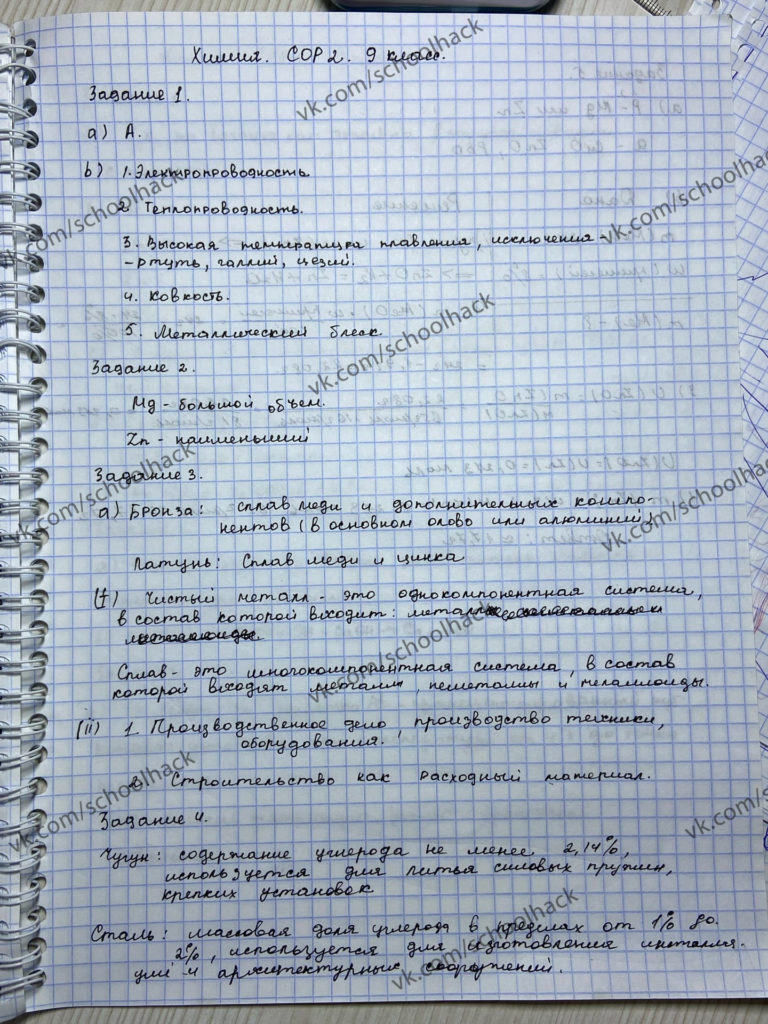 Химия. СОР 2. 9 класс.
Задание 1.
а) А.
b) 1. Электропроводность.
2 Теплопроводность.
3. Высокая температура плавления, исключения -
- ртуть, галлий, цезий.
4. Ковкость.
5. Металлический блеск.
Задание 2.
Mg - большой объем.
Zn - наименьший
Задание 3.
а) Бронза: сплав меди и дополнительных компо-
нентов (в основном олово или алюминий)
Латунь: Сплав меди и цинка
(I) Чистый металл - это однокомпонентная система,
в состав которой входит: металл
Сплав - это многокомпонентная система, в состав
которой входят металлы, неметаллы и металлоиды.
(ii) 1. Производственное дело, производство техники,
оборудования.
2 Строительство как расходный материал.
Задание 4.
Чугун: содержание углерода не менее 2,14%,
используется для литья силовых пружин,
крепких установок
Сталь: массовая доля углерода в пределах от 1% до
2%, используется для изготовления инсталля-
ций и архитектурных сооружений.
vk.com/schoolhack
vk.com/schoolhack
vk.com/schoolhack
vk.com/schoolhack
vk.com/schoolhack
vk.com/schoolhack
vk.com/schoolhack
vk.com/schoolhack
vk.com/schoolhack